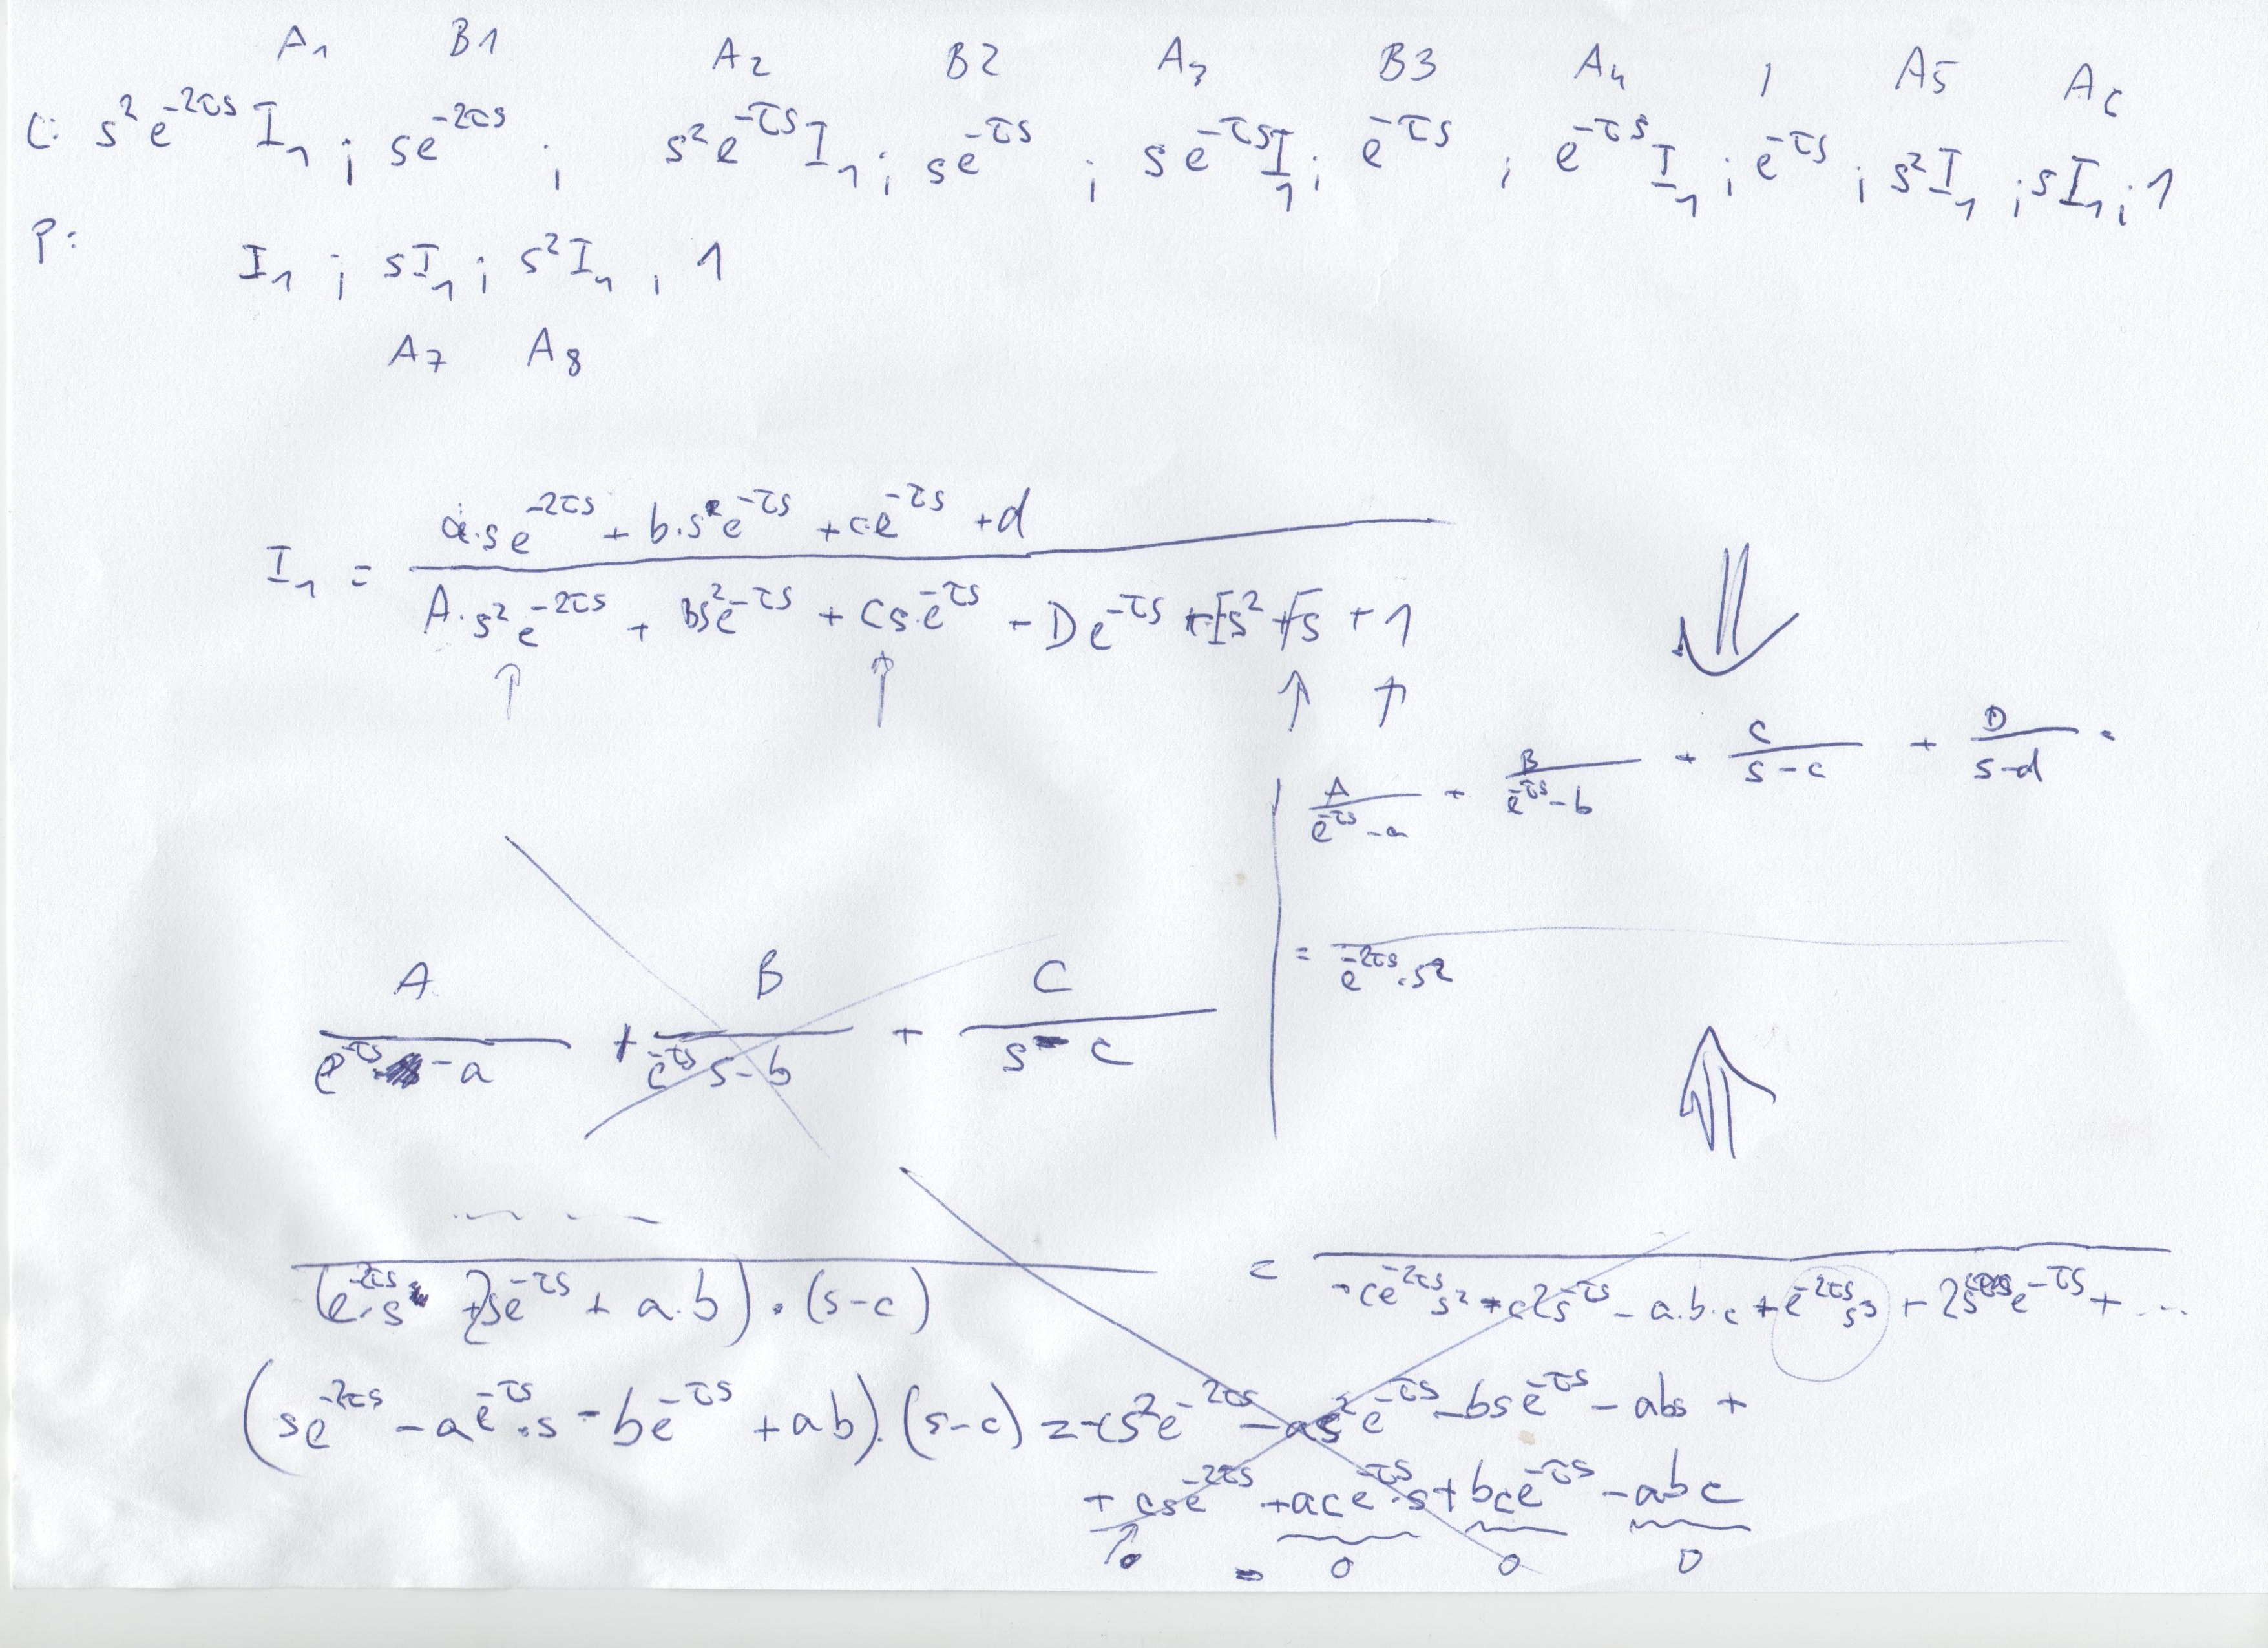 A₁ B1 A₂ B2 A₃ B3 A₄ 1 A5 A₆
L: s²e^{-2τs} I₁ ; se^{-2τs} ; s²e^{-τs} I₁ ; se^{-τs} ; se^{-τs} I₁ ; e^{-τs} ; e^{-τs} I₁ ; e^{-τs} ; s²I₁ ; sI₁ ; 1
P: I₁ ; sI₁ ; s²I₁ , 1
A₇ A₈
I₁ = (a·se^{-2τs} + b·s e^{-τs} + c·e^{-τs} + d) / (A·s²e^{-2τs} + Bs²e^{-τs} + Cs·e^{-τs} + De^{-τs} + Es² + Fs + 1)
↑ ↑ ↑ ↑
⇓
A/(e^{-τs} - a) + B/(e^{-τs} - b) + C/(s - c) + D/(s - d) =
= /(e^{-2τs}·s²
A/(e^{-τs} - a) + B/(e^{-τs} s - b) + C/(s - c)
⇑
/(e^{-2τs}·s + 2se^{-τs} + a·b)·(s-c) = /(-ce^{-2τs}s² + c2s^{-τs} - a·b·c + e^{-2τs}s³ + 2s e^{-τs} + ...
(se^{-2τs} - ae^{-τs}·s - be^{-τs} + ab)·(s-c) = cs²e^{-2τs} - as²e^{-τs} - bse^{-τs} - abs +
+ cse^{-2τs} + ace^{-τs}·s + bce^{-τs} - abc
↑0 = 0 0 0